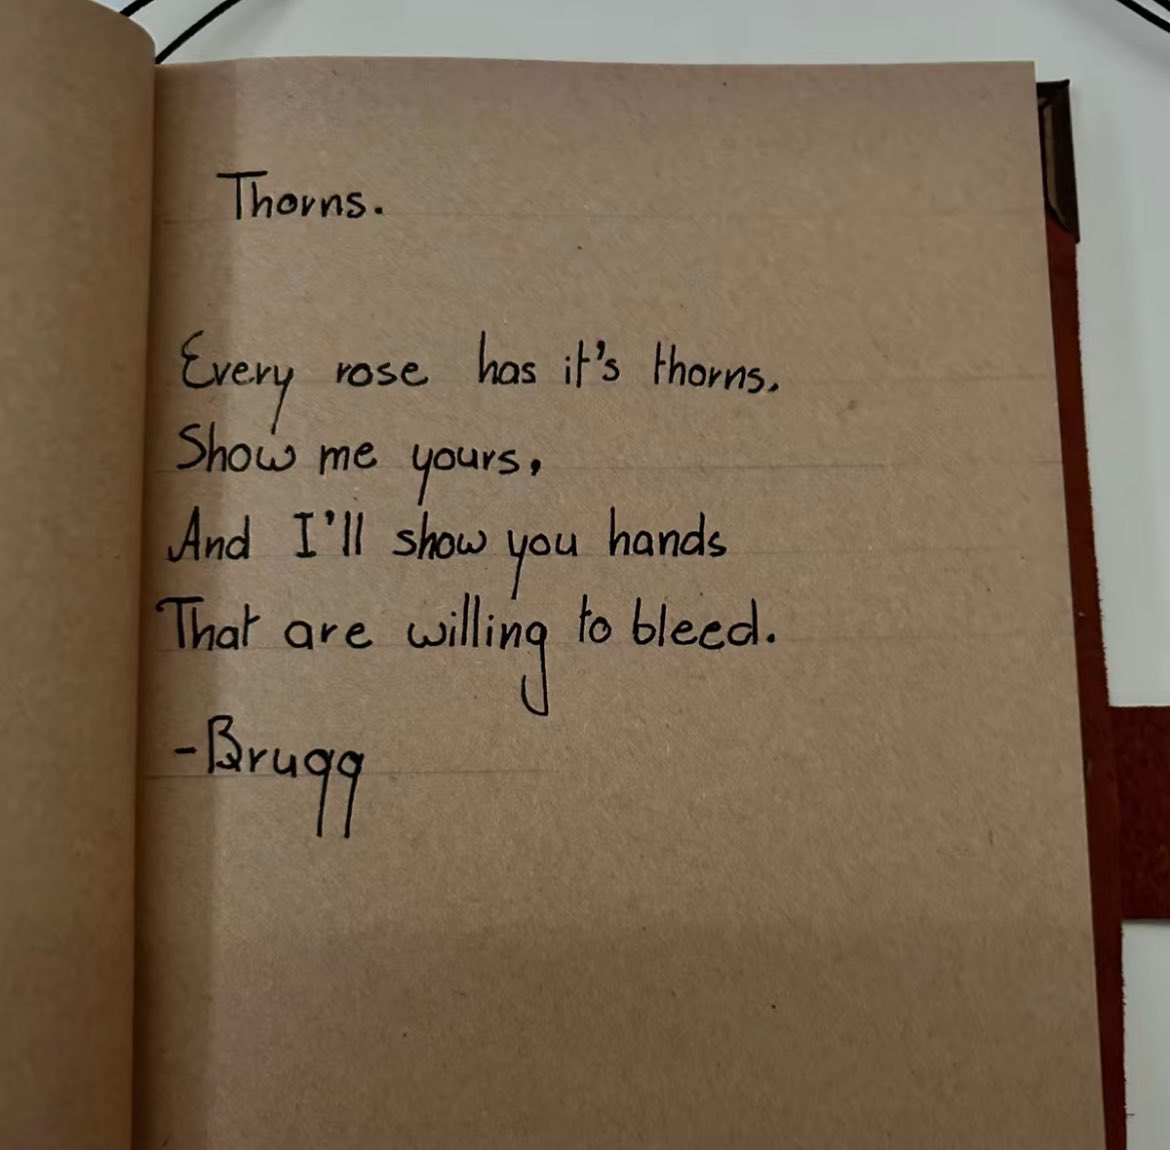 Thorns.
Every rose has it's thorns.
Show me yours,
And I'll show you hands
That are willing to bleed.
-Brugg